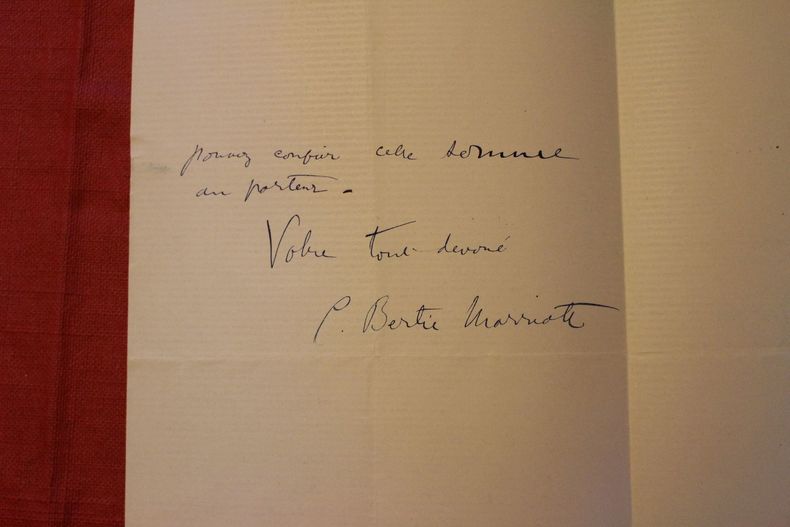 pouvez confier cette somme
au porteur.
Votre tout dévoué
C. Bertie Marriott